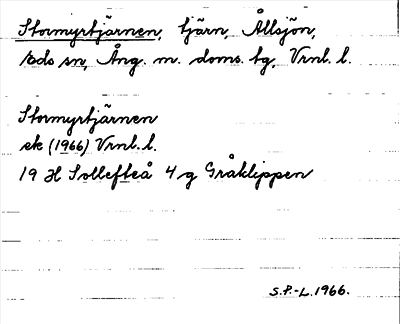 Stormyrtjärnen, tjärn, Ållsjön,
Eds sn, Ång. m. doms. bg, Vrnl. l.
Stormyrtjärnen
ek (1966) Vrnl. l.
19 H Sollefteå 4 g Gråklippen
S.P.-L. 1966.